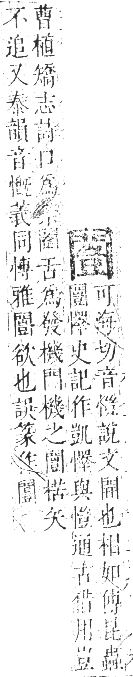 闓
可海切音愷說文開也相如傳昆蟲
闓懌史記作凱懌與愷通古借用豈
曹植矯志詩口爲禁闥舌爲發機門機之闓楛矢
不追又泰韻音慨義同博雅闓欲也誤篆作闓